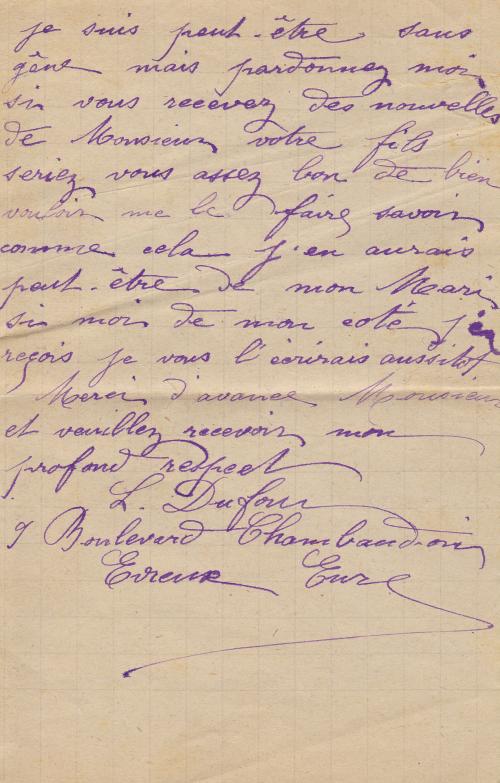 je suis peut-être sans
gêne mais pardonnez moi
si vous recevez des nouvelles
de Monsieur votre fils
seriez vous assez bon de bien
vouloir me le faire savoir
comme cela j'en aurais
peut-être de mon Mari
si moi de mon coté j'en
reçois je vous l'écrirais aussitot
Merci d'avance Monsieur
et veuillez recevoir mon
profond respect
L. Dufour
9 Boulevard Chambaudoin
Evreux Eure